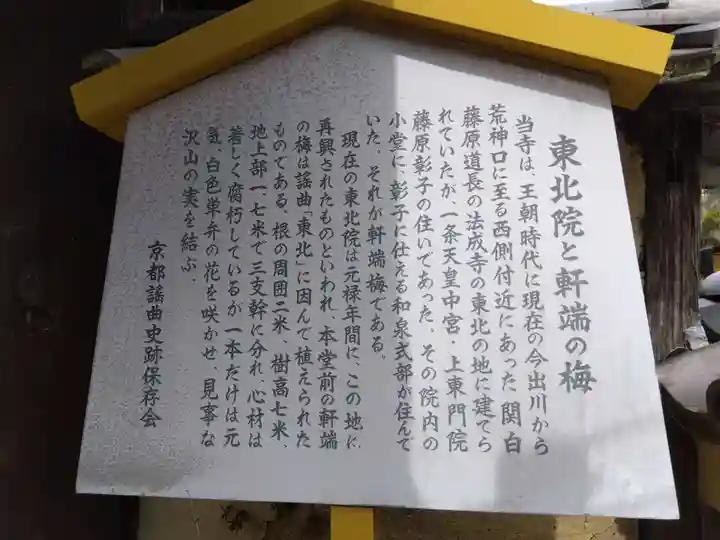 東北院と軒端の梅
当寺は、王朝時代に現在の今出川から
荒神口に至る西側付近にあった関白
藤原道長の法成寺の東北の地に建てら
れていたが、一条天皇中宮・上東門院
藤原彰子の住いであった。その院内の
小堂に、彰子に仕える和泉式部が住んで
いた。それが軒端梅である。
現在の東北院は元禄年間に、この地に
再興されたものといわれ、本堂前の軒端
の梅は謡曲「東北」に因んで植えられた
ものである。根の周囲二米、樹高七米、
地上部一、七米で三支幹に分れ、心材は
著しく腐朽しているが一本だけは元
気、白色単弁の花を咲かせ、見事な
沢山の実を結ぶ。
京都謡曲史跡保存会